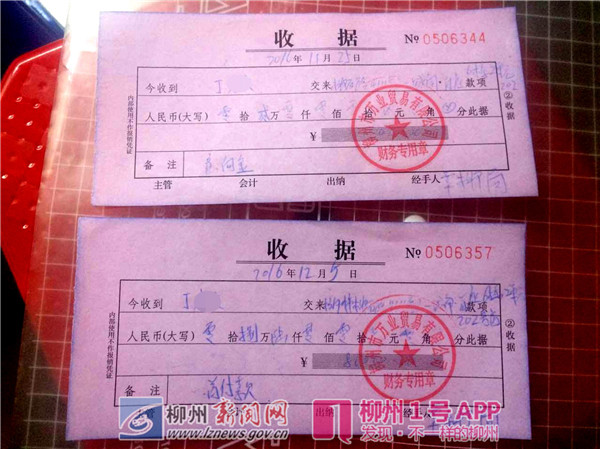 收据
№ 0506344
2016年11月25日
今收到 丁 交来 款项
人民币(大写) 零拾贰万零仟零佰 拾 元 角 分 此据
¥
备注
主管 会计 出纳 经手人
内部使用不作报销凭证
②收据
柳州市万业贸易有限公司
财务专用章
收据
№ 0506357
2016年12月5日
今收到 丁 交来
202
人民币(大写) 零拾捌万 仟零佰零拾 元零角 分 此据
¥
备注 首付款
主管 出纳 经
内部使用不作报销凭证
②收据
柳州市万业贸易有限公司
财务专用章
柳州新闻网
www.lznews.gov.cn
柳州1号APP
发现·不一样的柳州